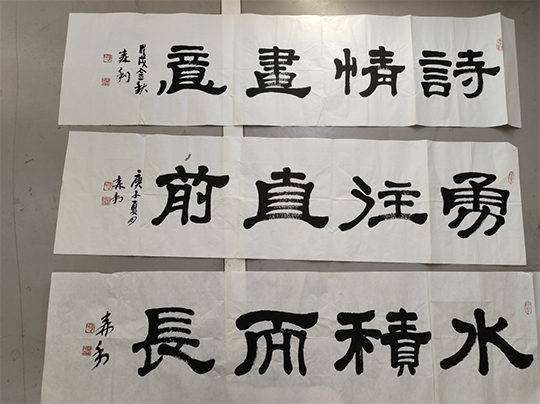 詩情畫意
勇往直前
庚子夏月
水積而長